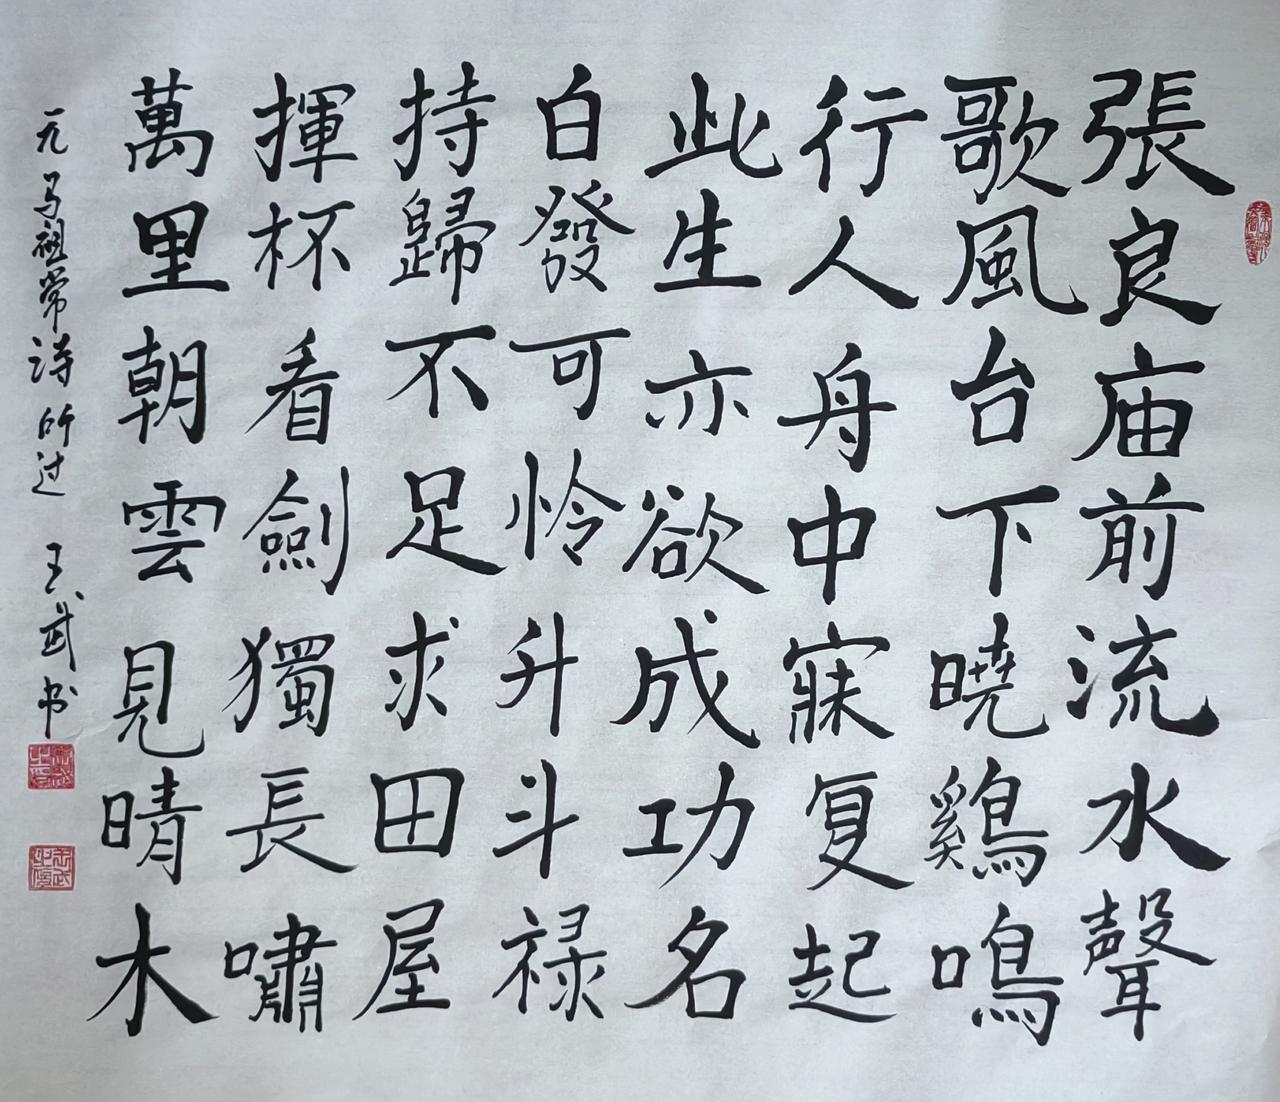 張良庙前流水聲
歌風台下曉鷄鳴
行人舟中寐复起
此生亦欲成功名
白發可怜升斗禄
持歸不足求田屋
揮杯看劍獨長嘯
萬里朝雲見晴木
元马祖常诗所过 王武书